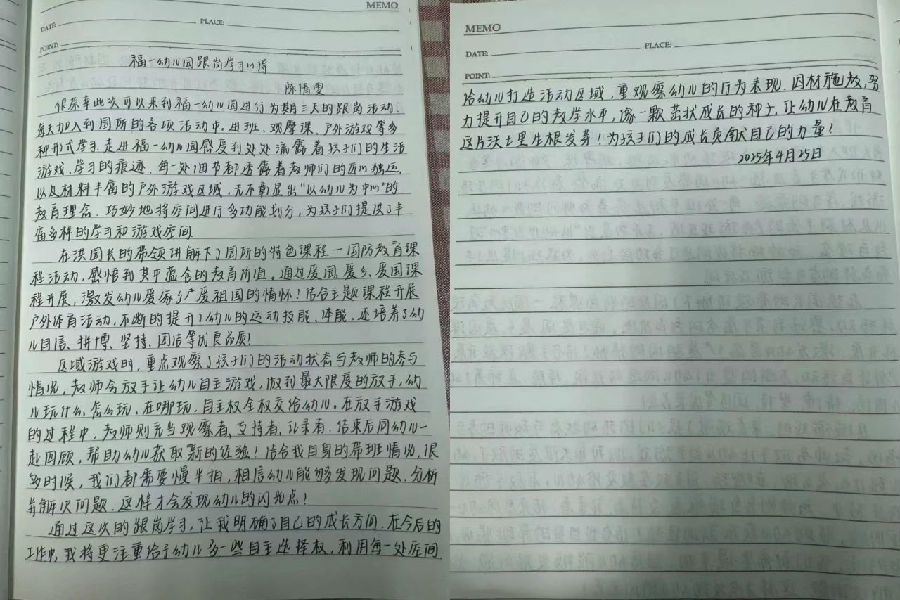 MEMO
DATE
PLACE
POINT
福一幼儿园跟岗学习心得
陈
很荣幸此次可以来到福一幼儿园进行为期三天的跟岗活动,
每天加入到园所的各项活动中。进班、观摩课、户外游戏等多
种形式学习走进福一幼儿园感受到处处满藏着孩子们的生活
游戏、学习的痕迹,每一处细节都透露着教师们的匠心独运。
以及材料丰富的户外游戏区域,无不彰显出“以幼儿为中心”的
教育理念,巧妙地将空间进行多功能划分,为孩子们提供了丰
富多样的学习和游戏空间
在洪园长的带领讲解下了园所的特色课程—国防教育课
程活动,感悟到其中蕴含的教育价值,通过爱园、爱乡、爱国课
程开展,激发幼儿爱家爱祖国的情怀!结合主题课程开展
户外体育活动,不断的提升了幼儿的运动技能、体能,还培养了幼
儿自信、拼搏、坚持、团结等优良品质!
区域游戏时,重点观察了孩子们的活动状态与教师的参与
情况,教师会放手让幼儿自主游戏,做到最大限度的放手,幼
儿玩什么,怎么玩,在哪玩,自主权全权交给幼儿。在放手游戏
的过程中,教师则充当观察者、支持者、记录者,结束后同幼儿一
起回顾,帮助幼儿获取新的经验!结合我自身的带班情况,很
多时候,我们都需要慢半拍,相信幼儿能够发现问题、分析
并解决问题,这样才会发现幼儿的闪光点!
通过这次的跟岗学习,让我明确了自己的成长方向,在今后的
工作中,我将更注重给予幼儿多一些自主选择权,利用每一处空间
MEMO
DATE
PLACE
POINT
给幼儿打造活动区域,重观察幼儿的行为表现,因材施教,努
力提升自己的教学水平,滴一颗茁状成长的种子,让幼儿在教育
这片沃土里生根发芽!为孩子们的成长贡献自己的力量!
2025年4月25日